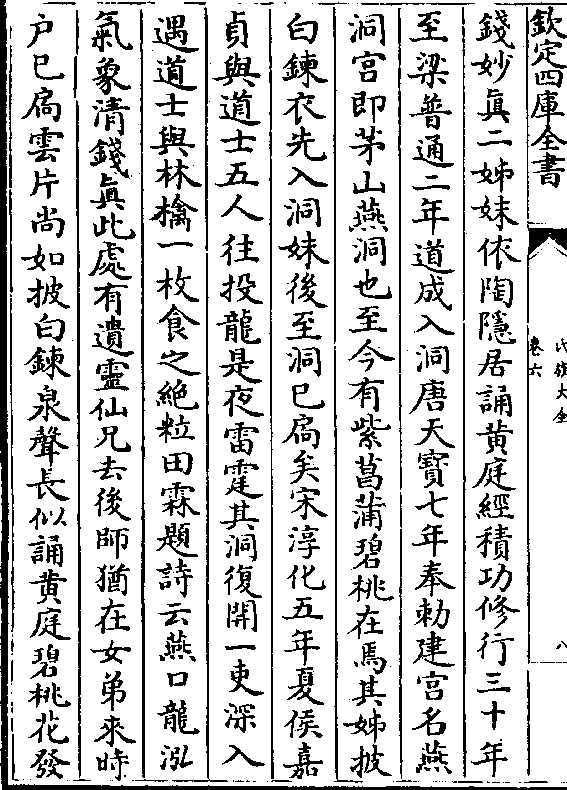 欽定四庫全書
卷六
八
錢妙眞二姊妹依陶隱居誦黄庭經積功修行三十年
至梁普通二年道成入洞唐天寶七年奉勅建宮名燕
洞宮即茅山燕洞也至今有紫菖蒲碧桃在焉其姊披
白鍊衣先入洞妹後至洞已扃矣宋淳化五年夏侯嘉
貞與道士五人往投龍是夜雷霆其洞復開一吏深入
遇道士與林檎一枚食之絶粒田霖題詩云燕口龍泓
氣象清錢眞此處有遺靈仙兄去後師猶在女弟來時
户已扃雲片尚如披白鍊泉聲長似誦黄庭碧桃花發